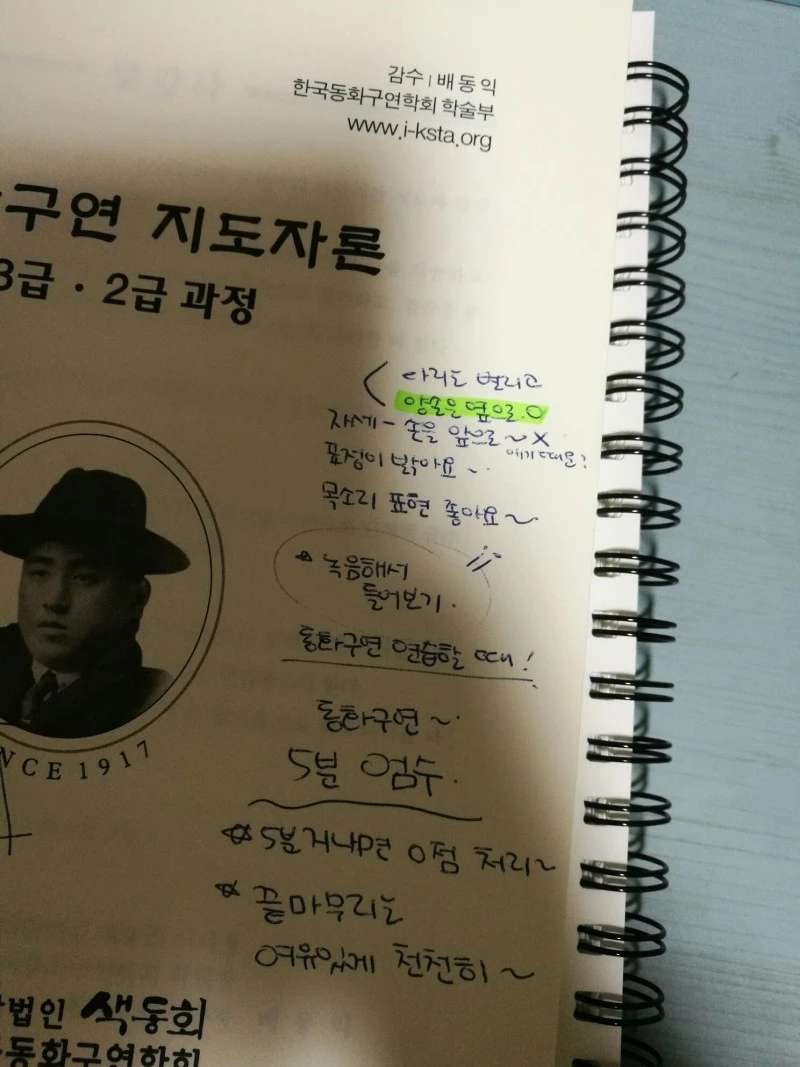 감수 | 배동익
한국동화구연학회 학술부
www.i-ksta.org
구연 지도자론
3급 · 2급 과정
다리도 벌리고
양손은 옆으로 O
자세 - 손을 앞으로~ X
얘기때문?
표정이 밝아요~
목소리 표현 좋아요~
녹음해서
들어보기.
동화구연 연습할 때!
동화구연~
5분 엄수.
NCE 1917
☆ 5분지나면 0점 처리~
☆ 끝마무리는
여유있게 천천히~
법인 색동회
동화구연학회